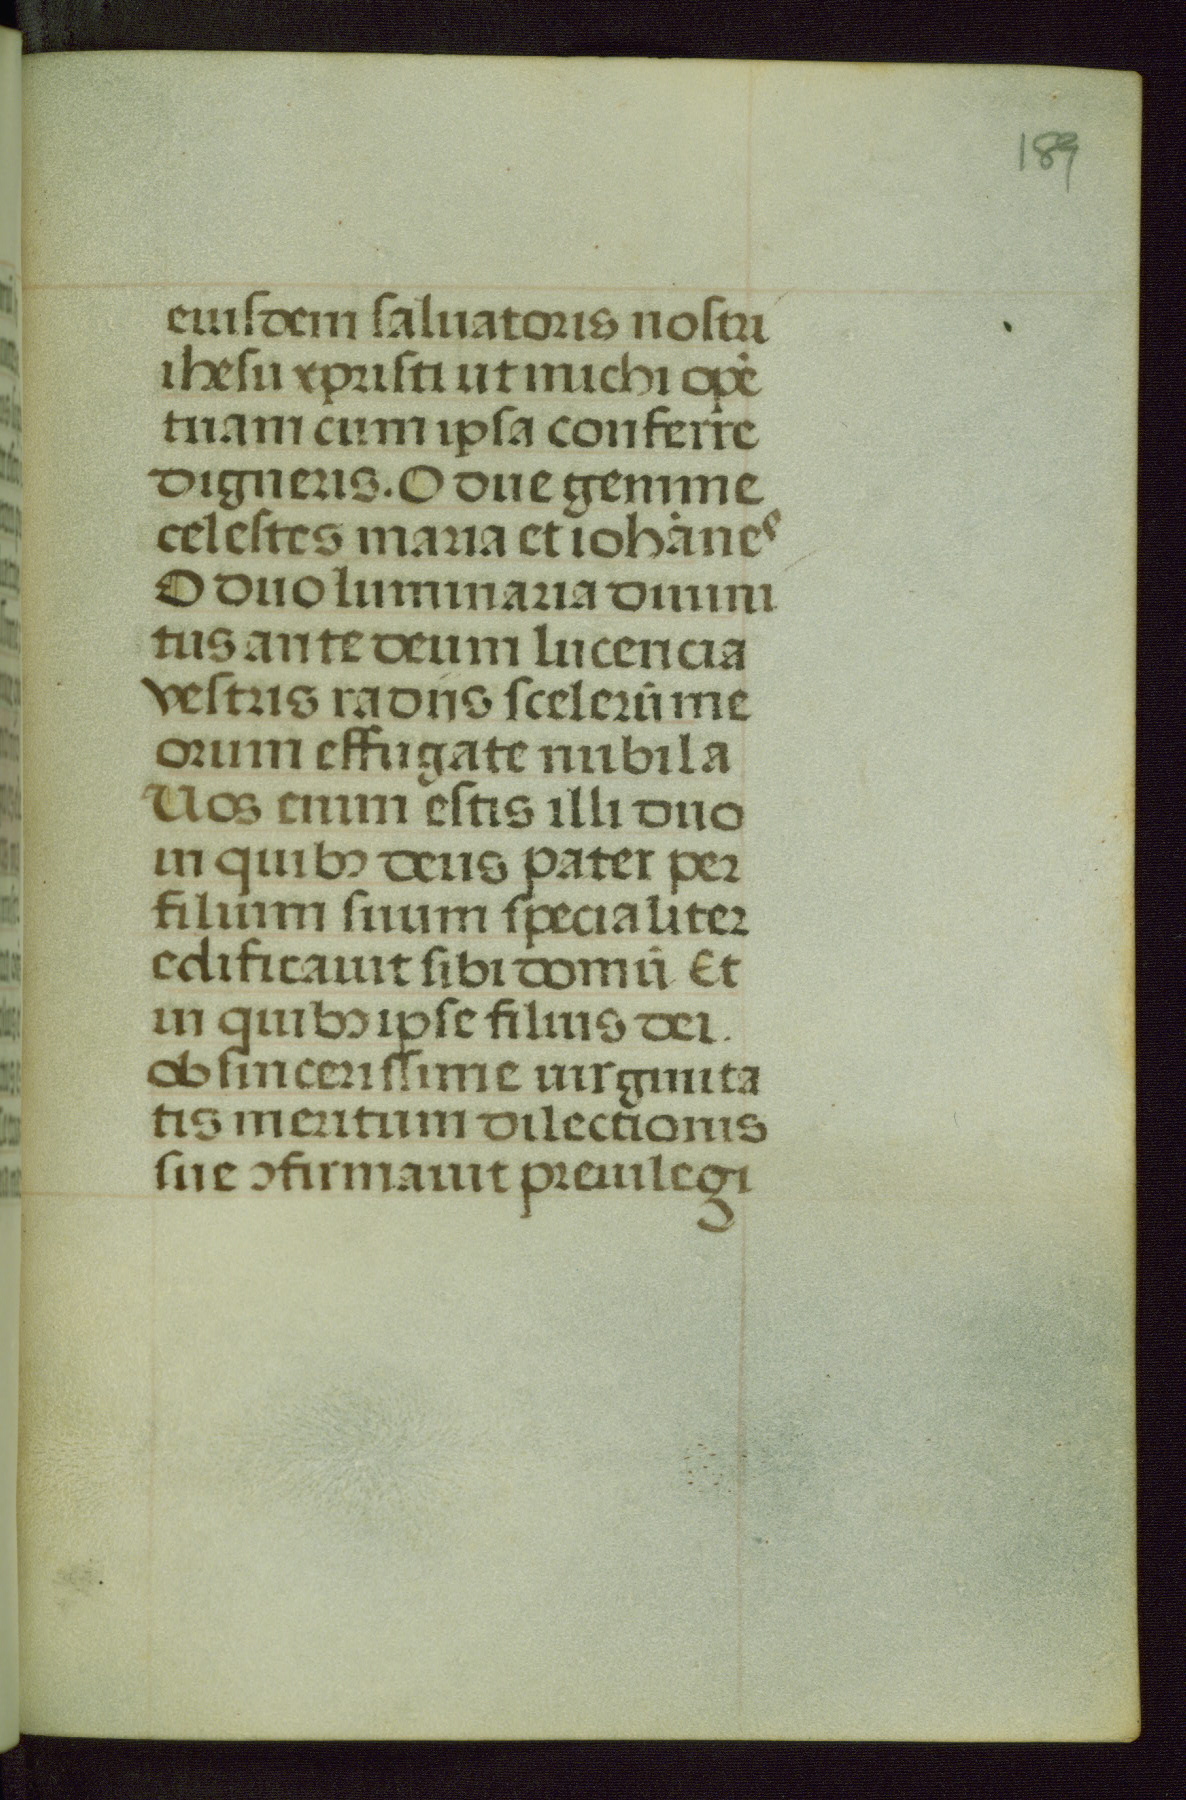 189
euisdem saluatoris nostri
ihesu xpristi ut michi opē
tuam cum ipsa conferre
digneris. O due gemme
celestes maria et iohānes
O duo luminaria diuini
tus ante deum lucencia
vestris radijs scelerū me
orum effugate nubila
Uos enim estis illi duo
in quibꝫ deus pater per
filium suum specialiter
edificauit sibi domū Et
in quibꝫ ipse filius dei.
ob sincerissime uirginita
tis meritum dilectionis
sue ꝯfirmauit preuilegi